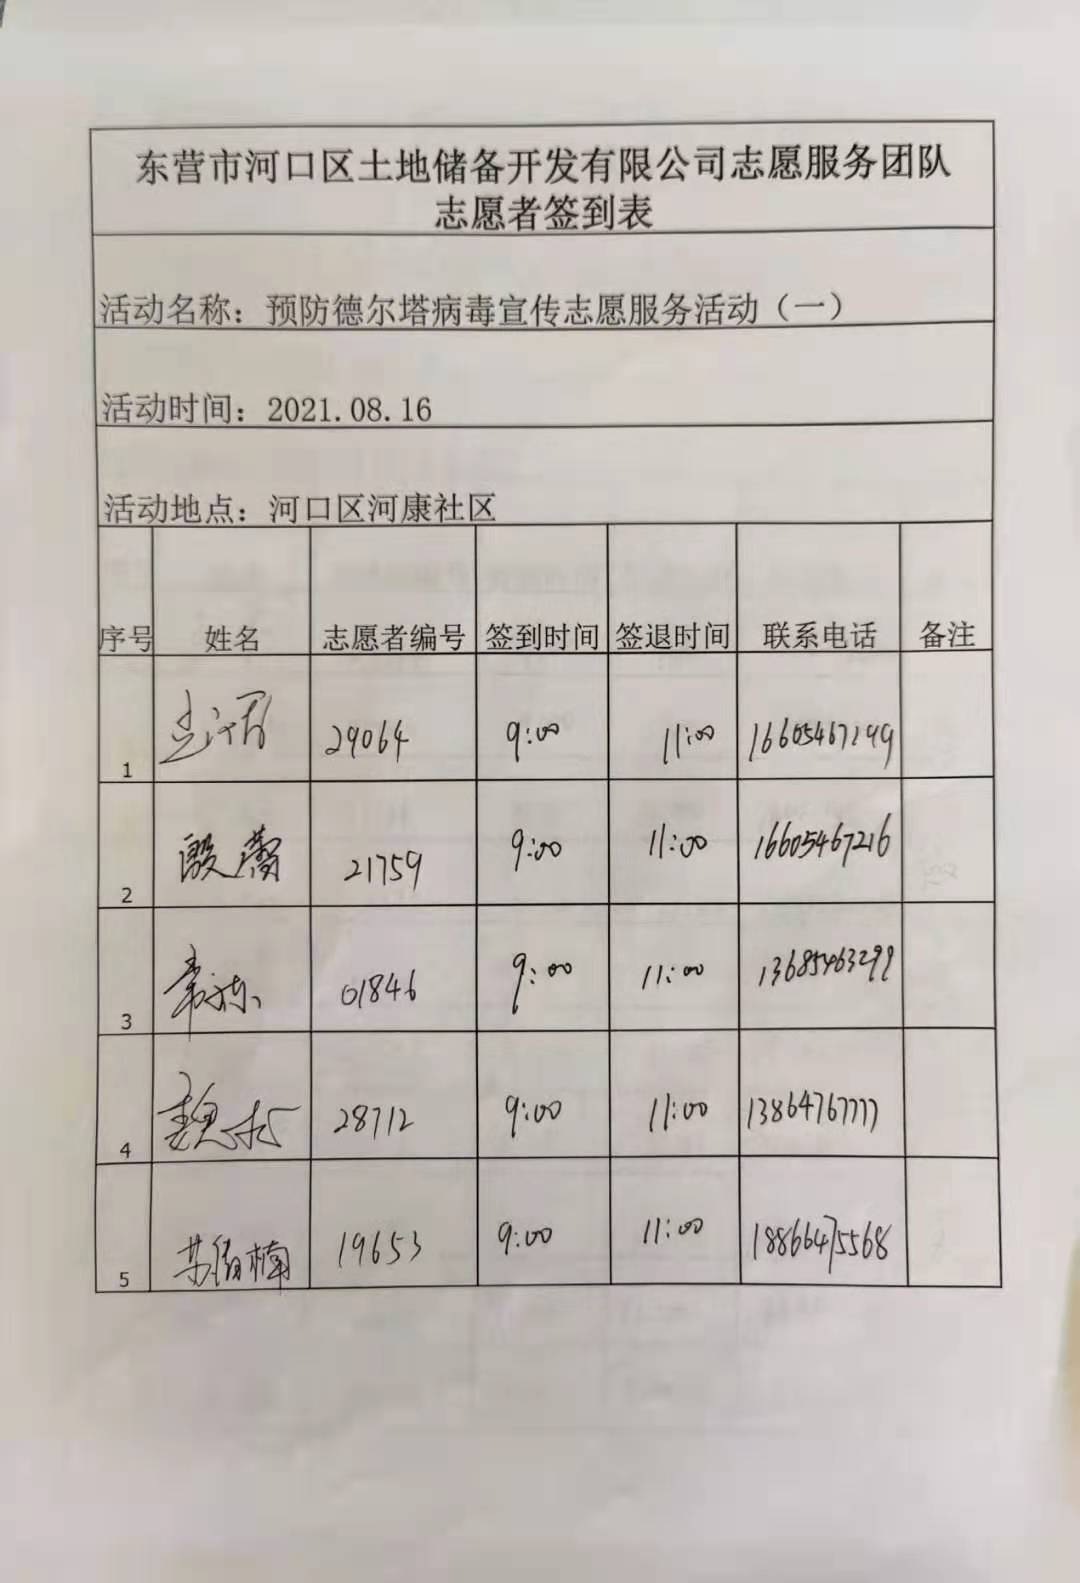 东营市河口区土地储备开发有限公司志愿服务团队
志愿者签到表
活动名称：预防德尔塔病毒宣传志愿服务活动（一）
活动时间：2021.08.16
活动地点：河口区河康社区
序号 姓名 志愿者编号 签到时间 签退时间 联系电话 备注
1 29064 9:00 11:00 16605467199
2 殷蕾 21759 9:00 11:00 16605467216
3 01846 9:00 11:00 13685463299
4 28712 9:00 11:00 13864767777
5 19653 9:00 11:00 18866475568